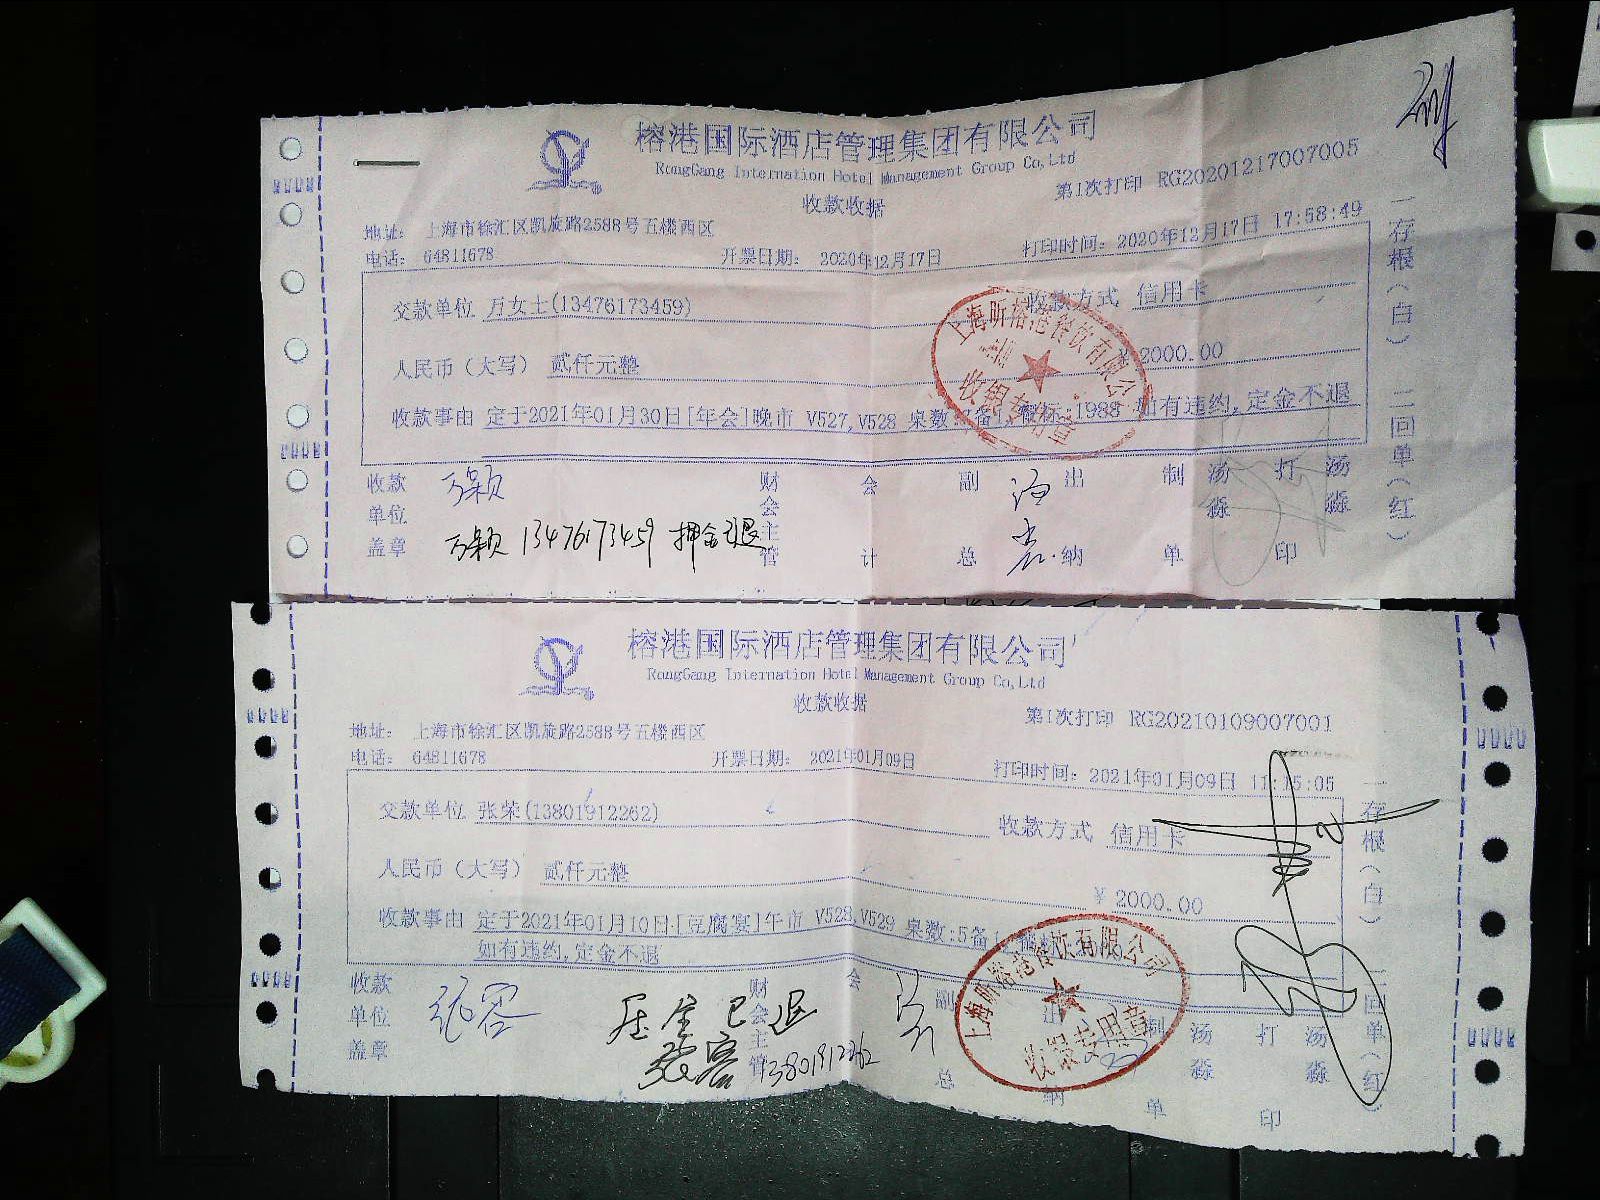 榕港国际酒店管理集团有限公司
RongGang Internation Hotel Management Group Co,Ltd
收款收据
第1次打印 RG20201217007005
地址： 上海市徐汇区凯旋路2588号五楼西区
电话： 64811678
开票日期： 2020年12月17日
打印时间：2020年12月17日 17:58:49
交款单位 万女士(13476173459)
收款方式 信用卡
人民币（大写） 贰仟元整
¥ 2000.00
收款事由 定于2021年01月30日[年会]晚市 V527,V528 桌数: 备1, 餐标:1988 如有违约,定金不退
一存根（白） 二回单（红）
收款单位盖章
万颖
万颖 13476173459 押金已退
财会主管
会计
副总
出纳
制单
汤淼
打印
汤淼
上海昕榕港餐饮有限公司
收银专用章
榕港国际酒店管理集团有限公司
RongGang Internation Hotel Management Group Co,Ltd
收款收据
第1次打印 RG20210109007001
地址： 上海市徐汇区凯旋路2588号五楼西区
电话： 64811678
开票日期： 2021年01月09日
打印时间：2021年01月09日 11:15:05
交款单位 张荣(13801912262)
收款方式 信用卡
人民币（大写） 贰仟元整
¥ 2000.00
收款事由 定于2021年01月10日[豆腐宴]午市 V528,V529 桌数:5备1
如有违约,定金不退
一存根（白） 二回单（红）
收款单位盖章
压金已退
13801912262
财会主管
会
副总
出纳
制单
汤淼
打印
汤淼
上海昕榕港餐饮有限公司
收银专用章